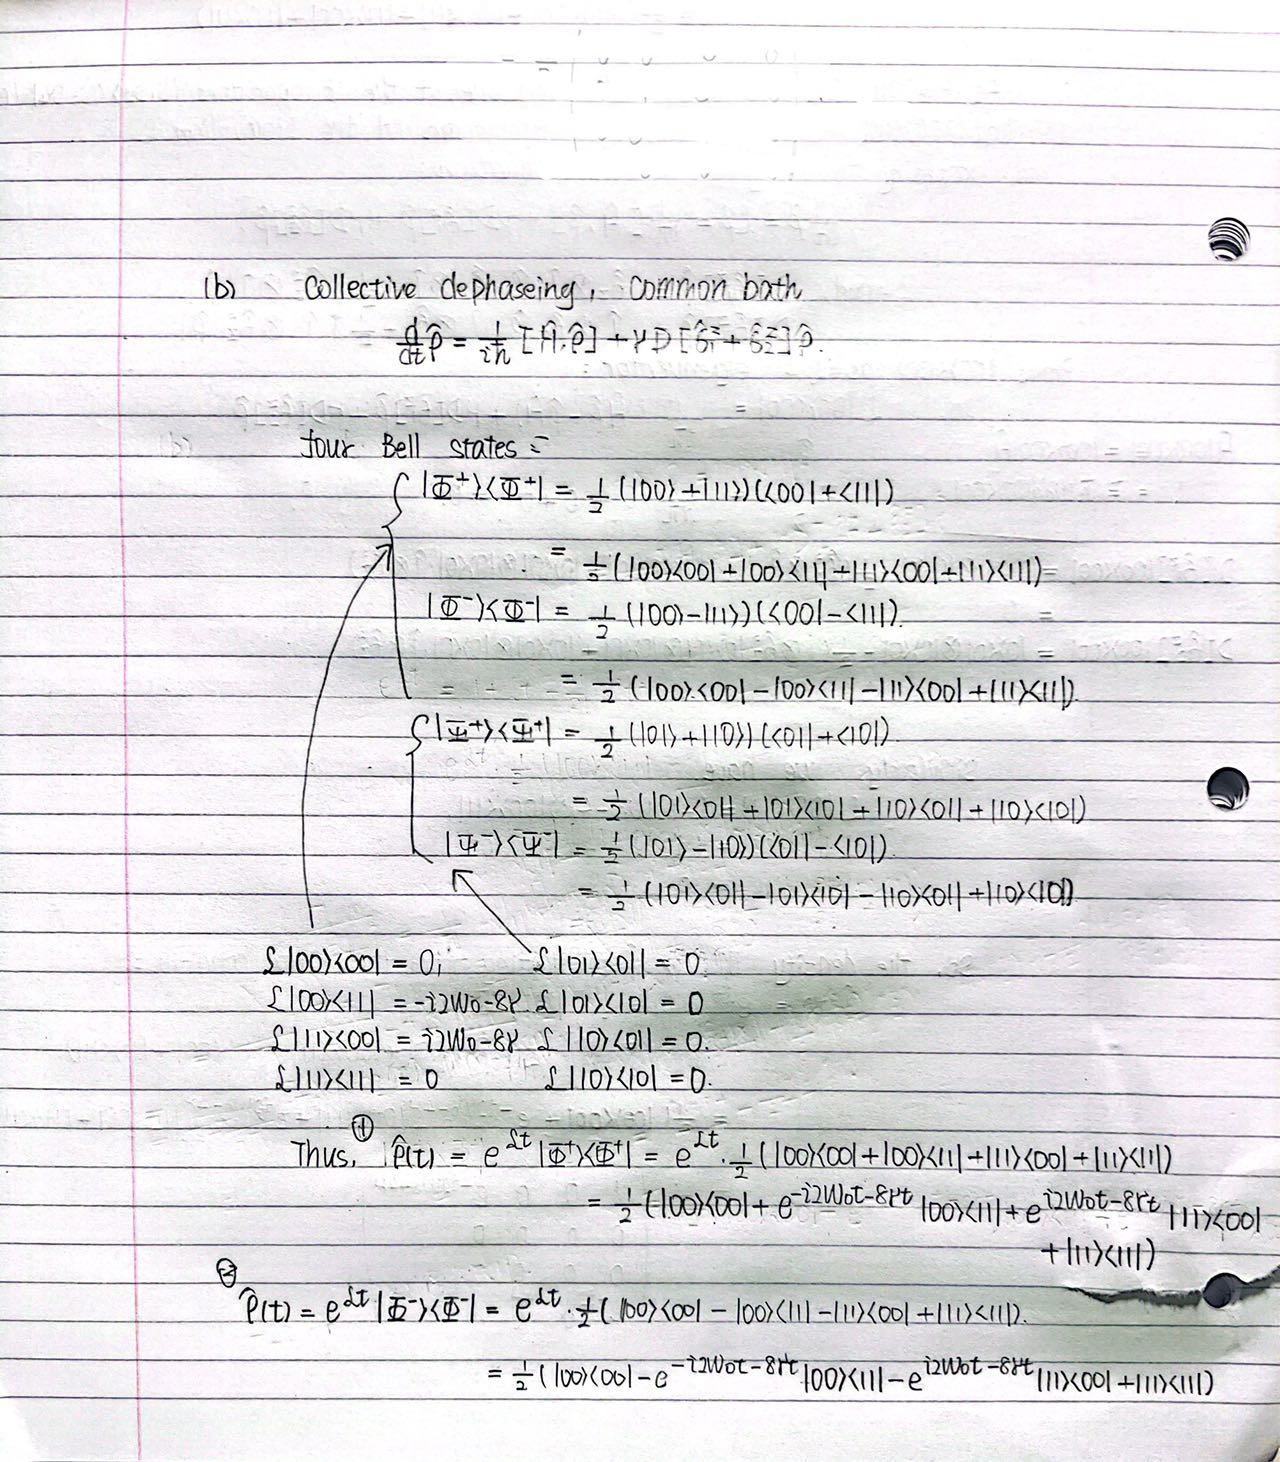 (b) Collective dephaseing, Common bath
d/dt ρ̂ = 1/iħ [Ĥ,ρ̂] + γD[σ̂₁ᶻ + σ̂₂ᶻ]ρ̂.
four Bell states =
|Φ⁺⟩⟨Φ⁺| = 1/2 (|00⟩+|11⟩)(⟨00|+⟨11|)
= 1/2 (|00⟩⟨00|+|00⟩⟨11|+|11⟩⟨00|+|11⟩⟨11|)
|Φ⁻⟩⟨Φ⁻| = 1/2 (|00⟩-|11⟩)(⟨00|-⟨11|).
= 1/2 (|00⟩⟨00|-|00⟩⟨11|-|11⟩⟨00|+|11⟩⟨11|).
|Ψ⁺⟩⟨Ψ⁺| = 1/2 (|01⟩+|10⟩)(⟨01|+⟨10|)
= 1/2 (|01⟩⟨01|+|01⟩⟨10|+|10⟩⟨01|+|10⟩⟨10|)
|Ψ⁻⟩⟨Ψ⁻| = 1/2 (|01⟩-|10⟩)(⟨01|-⟨10|).
= 1/2 (|01⟩⟨01|-|01⟩⟨10|-|10⟩⟨01|+|10⟩⟨10|)
£|00⟩⟨00| = 0; £|01⟩⟨01| = 0.
£|00⟩⟨11| = -i2W₀-8γ. £|01⟩⟨10| = 0
£|11⟩⟨00| = i2W₀-8γ £|10⟩⟨01| = 0.
£|11⟩⟨11| = 0 £|10⟩⟨10| = 0.
Thus, ① ρ̂(t) = e^{£t}|Φ⁺⟩⟨Φ⁺| = e^{£t}·1/2 (|00⟩⟨00|+|00⟩⟨11|+|11⟩⟨00|+|11⟩⟨11|)
= 1/2 (|00⟩⟨00|+ e^{-i2W₀t-8γt} |00⟩⟨11|+ e^{i2W₀t-8γt} |11⟩⟨00|
+|11⟩⟨11|)
②
ρ̂(t) = e^{£t}|Φ⁻⟩⟨Φ⁻| = e^{£t}·1/2 (|00⟩⟨00| - |00⟩⟨11| - |11⟩⟨00| + |11⟩⟨11|).
= 1/2 (|00⟩⟨00| - e^{-i2W₀t-8γt}|00⟩⟨11| - e^{i2W₀t-8γt}|11⟩⟨00| + |11⟩⟨11|)